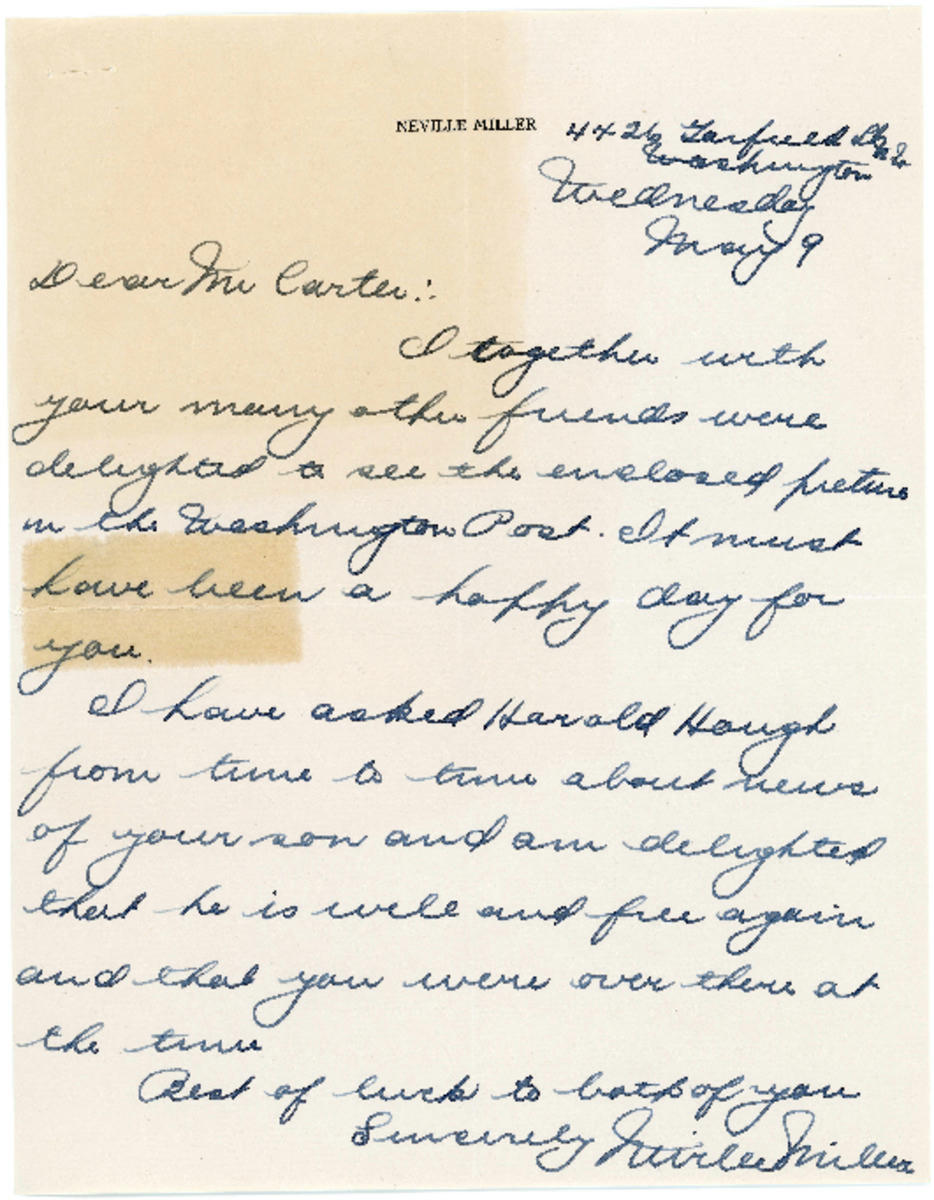 NEVILLE MILLER
4426 Garfield St NW
Washington
Wednesday
May 9
Dear Mr Carter:
I together with
your many other friends were
delighted to see the enclosed picture
in the Washington Post. It must
have been a happy day for
you.
I have asked Harold Hough
from time to time about news
of your son and am delighted
that he is well and free again
and that you were over there at
the time
Best of luck to both of you
Sincerely Neville Miller